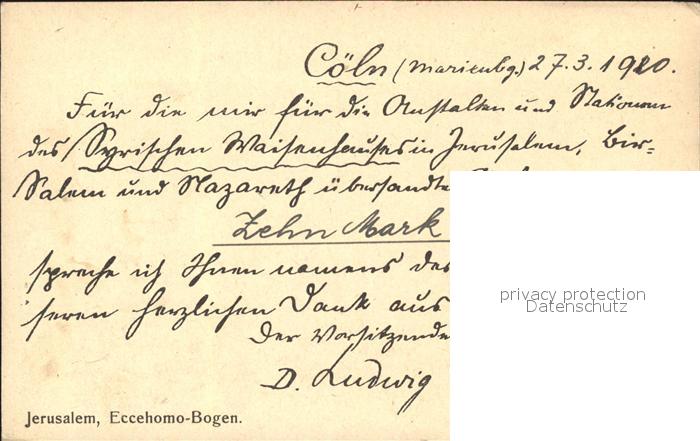 Cöln (Marienbg.) 27.3.1920.
Für die mir für die Anstalten und Stationen
des Syrischen Waisenhauses in Jerusalem, Bir-
Salem und Nazareth übersandte
Zehn Mark
spreche ich Ihnen namens des
seren herzlichen Dank aus
Der Vorsitzende
D. Ludwig
Jerusalem, Eccehomo-Bogen.
privacy protection
Datenschutz